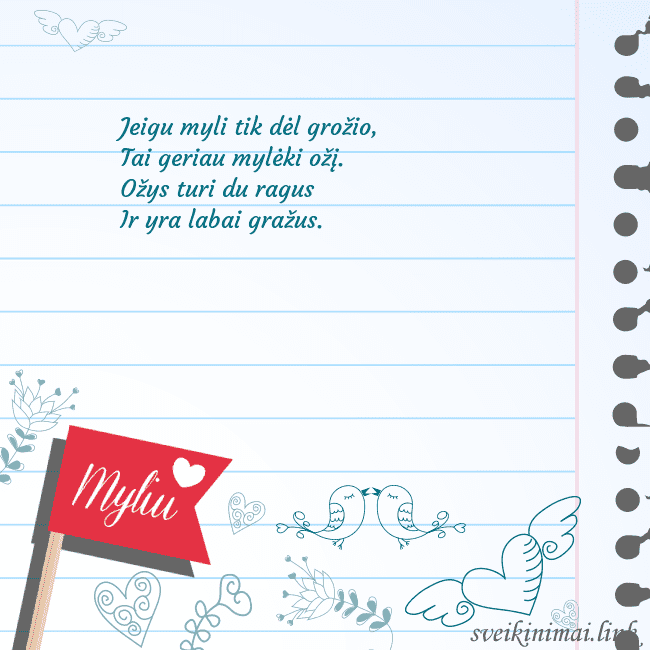 Jeigu myli tik dėl grožio,
Tai geriau mylėki ožį.
Ožys turi du ragus
Ir yra labai gražus.
Myliu
sveikinimai.link